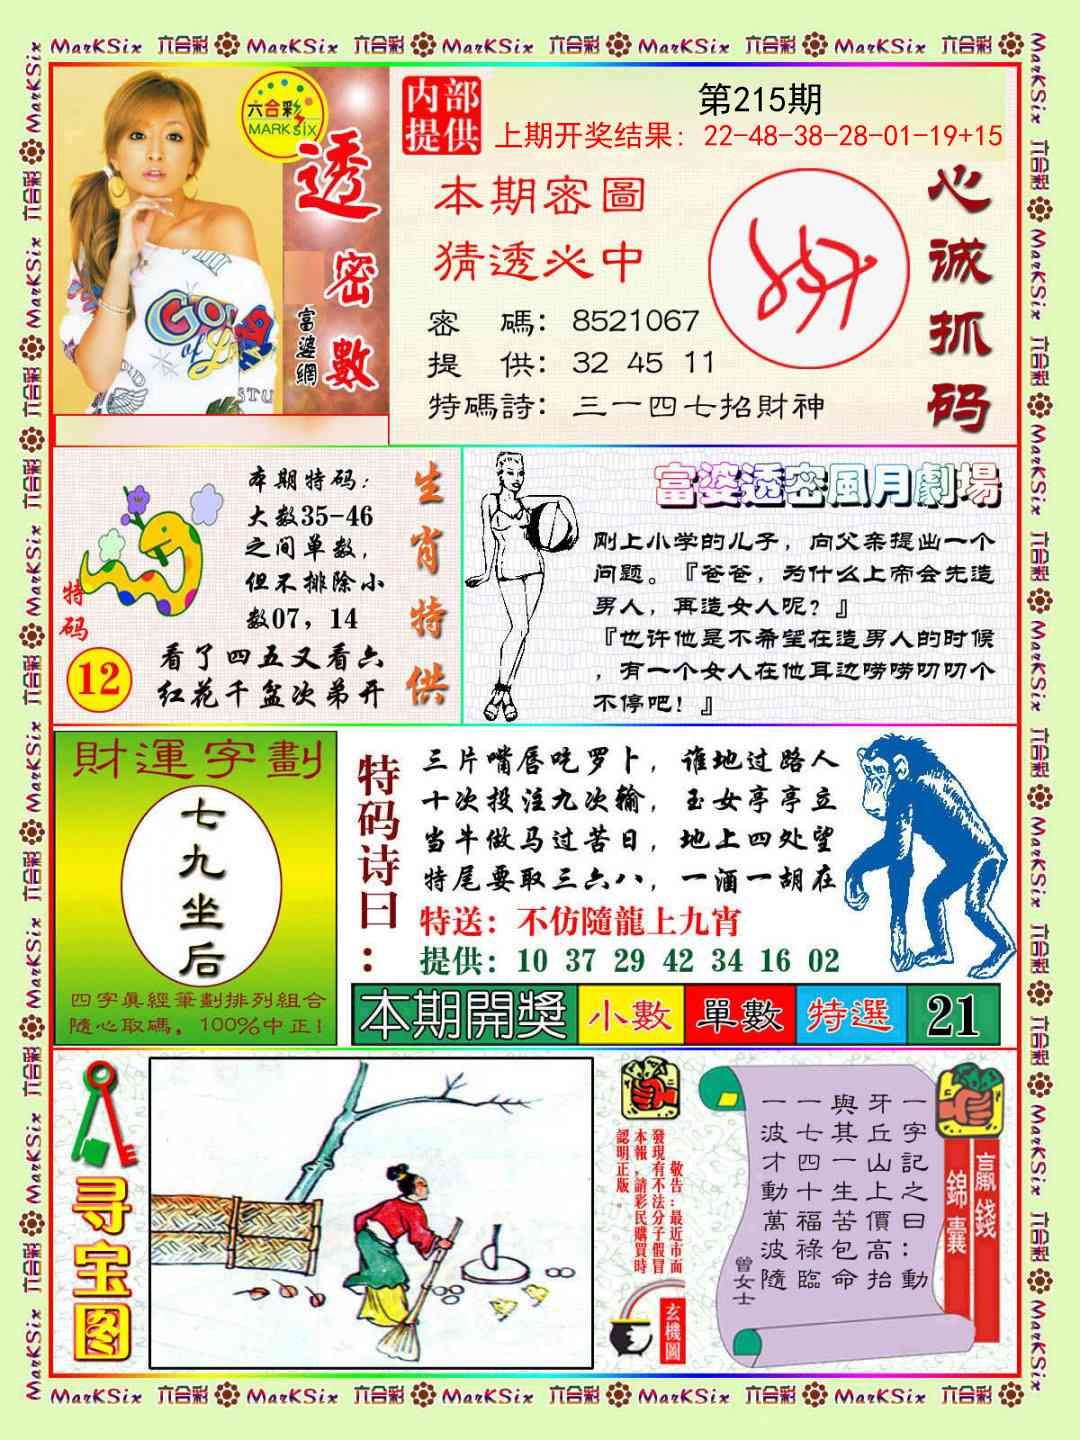 MarKSix 六合彩 MarKSix 六合彩 MarKSix 六合彩 MarKSix 六合彩 MarKSix 六合彩
六合彩
MARK SIX
透密數
富婆網
内部
提供
第215期
上期开奖结果：22-48-38-28-01-19+15
本期密圖
猜透必中
密 碼：8521067
提 供：32 45 11
特碼詩：三一四七招財神
心诚抓码
本期特码：
大数35-46
之间单数，
但不排除小
数07，14
特码
12
看了四五又看六
红花千盆次弟开
生肖特供
富婆透密風月劇場
刚上小学的儿子，向父亲提出一个
问题。『爸爸，为什么上帝会先造
男人，再造女人呢？』
『也许他是不希望在造男人的时候
，有一个女人在他耳边唠唠叨叨个
不停吧！』
財運字劃
七九坐后
四字真經筆劃排列組合
隨心取碼，100%中正!
特码诗曰：
三片嘴唇吃罗卜，谁地过路人
十次投注九次输，玉女亭亭立
当牛做马过苦日，地上四处望
特尾要取三六八，一酒一胡在
特送：不仿隨龍上九宵
提供：10 37 29 42 34 16 02
本期開獎 小數 單數 特選 21
寻宝图
敬告：最近市面
發現有不法分子假冒
本報，請彩民購買時
認明正版。
玄機圖
贏錢
錦囊
一字記之曰：動
牙丘山上價高抬
與其一生苦包命
一七四十福祿臨
一波才動萬波隨
曾女士
MarKSix 六合彩 MarKSix 六合彩 MarKSix 六合彩 MarKSix 六合彩 MarKSix 六合彩